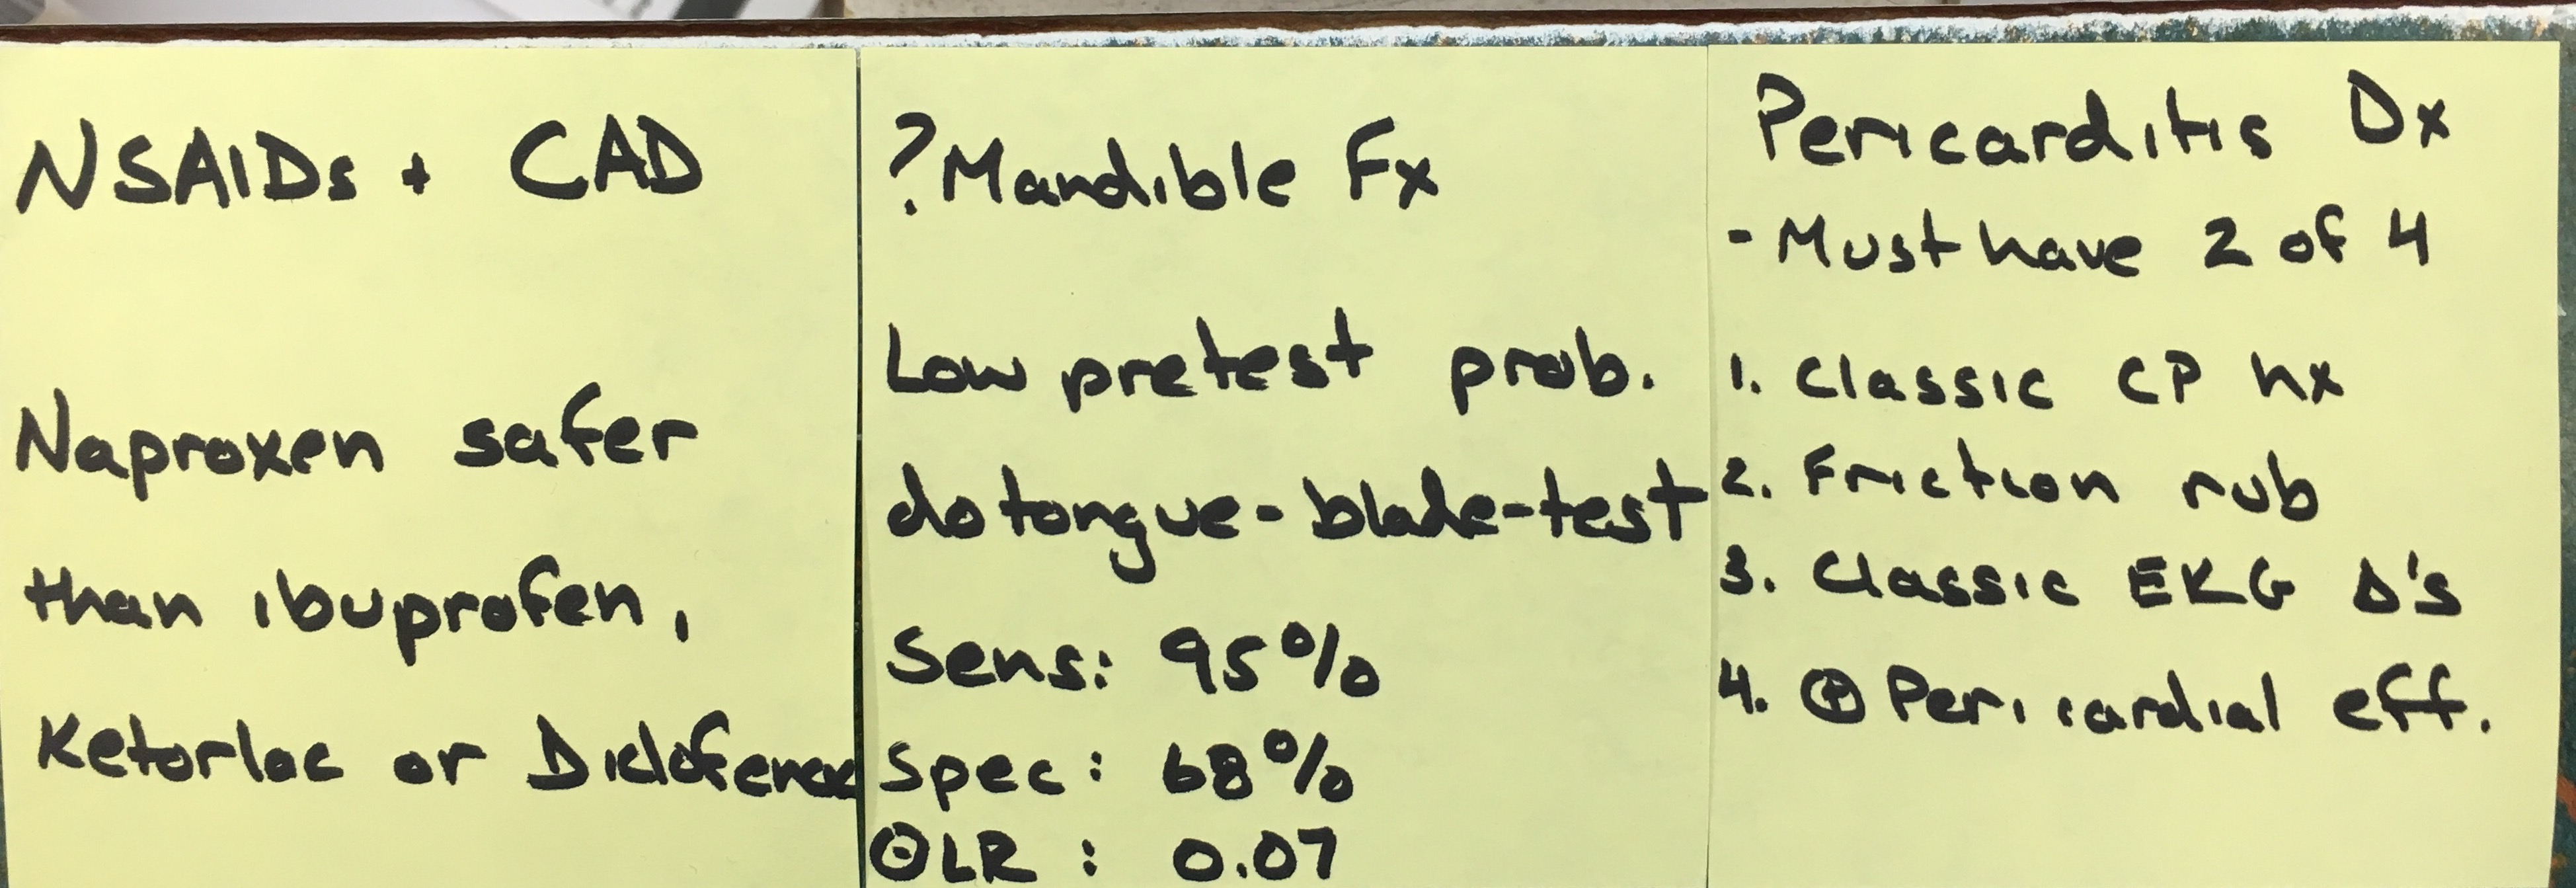 NSAIDs + CAD
Naproxen safer
than ibuprofen,
Ketorlac or Diclofenac
?Mandible Fx
Low pretest prob.
do tongue-blade-test
Sens: 95%
Spec: 68%
⊖LR: 0.07
Pericarditis Dx
- Must have 2 of 4
1. Classic CP hx
2. Friction rub
3. Classic EKG Δ's
4. ⊕ Pericardial eff.